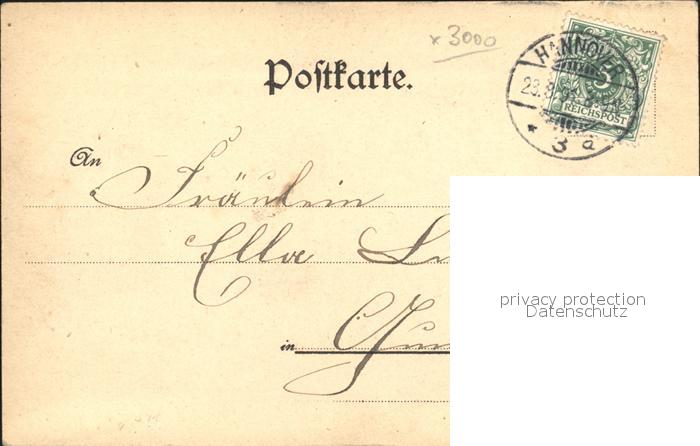 x 3000
Postkarte.
HANNOVER
5
REICHSPOST
* 3 a
An Fräulein
Ella
in
privacy protection
Datenschutz